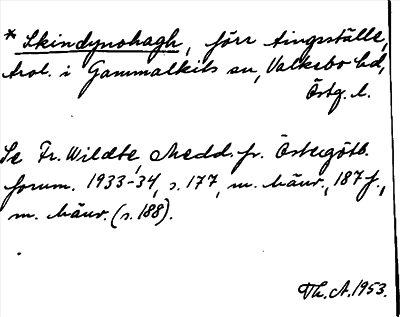 * Skindynohagh, förr tingsställe,
trol. i Gammalkils sn, Valkebo hd,
Östg. l.
Se Fr. Wildte, Medd. fr. Östergötl.
fornm. 1933-34, s. 177, m. hänv., 187 f.,
m. hänv. (s. 188).
Th. A. 1953.